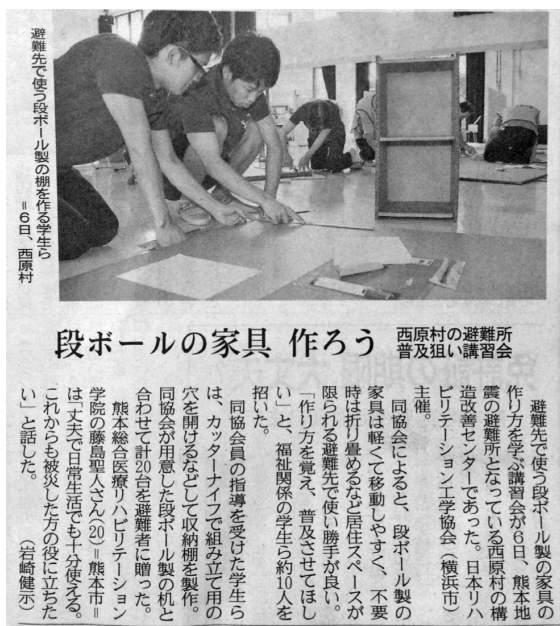 避難先で使う段ボール製の棚を作る学生ら
=6日、西原村
段ボールの家具 作ろう
西原村の避難所
普及狙い講習会
避難先で使う段ボール製の家具の
作り方を学ぶ講習会が6日、熊本地
震の避難所となっている西原村の構
造改善センターであった。日本リハ
ビリテーション工学協会(横浜市)
主催。
同協会によると、段ボール製の
家具は軽くて移動しやすく、不要
時は折り畳めるなど居住スペースが
限られる避難先で使い勝手が良い。
「作り方を覚え、普及させてほし
い」と、福祉関係の学生ら約10人を
招いた。
同協会員の指導を受けた学生ら
は、カッターナイフで組み立て用の
穴を開けるなどして収納棚を製作。
同協会が用意した段ボール製の机と
合わせて計20台を避難者に贈った。
熊本総合医療リハビリテーション
学院の藤島聖人さん(20)=熊本市=
は「丈夫で日常生活でも十分使える。
これからも被災した方の役に立ちた
い」と話した。 (岩崎健示)